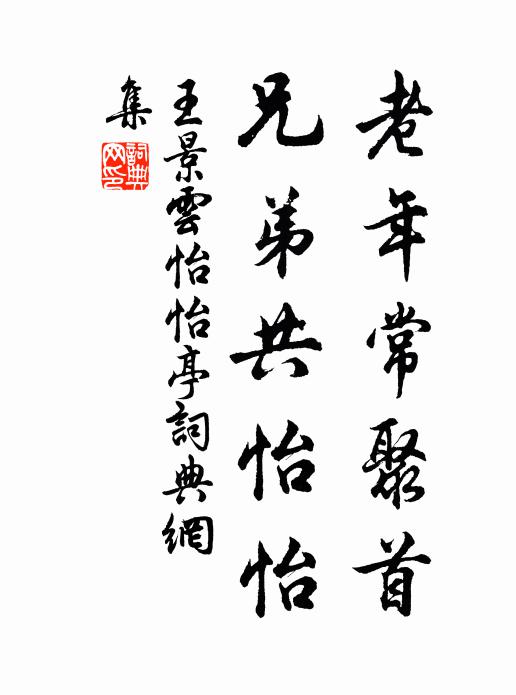 老年常聚首
兄弟共怡怡
王景雲怡怡亭詞典網
集
詞典
网印